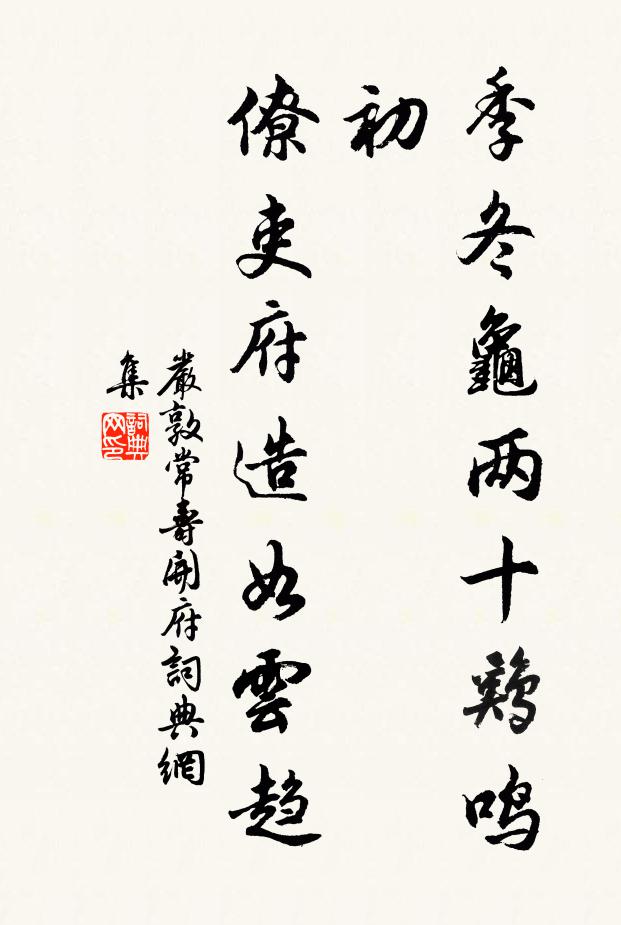 季冬龜两十鷄鸣
初
僚吏府造如雲趋
嚴敦常壽開府詞典網
集
詞典
网印